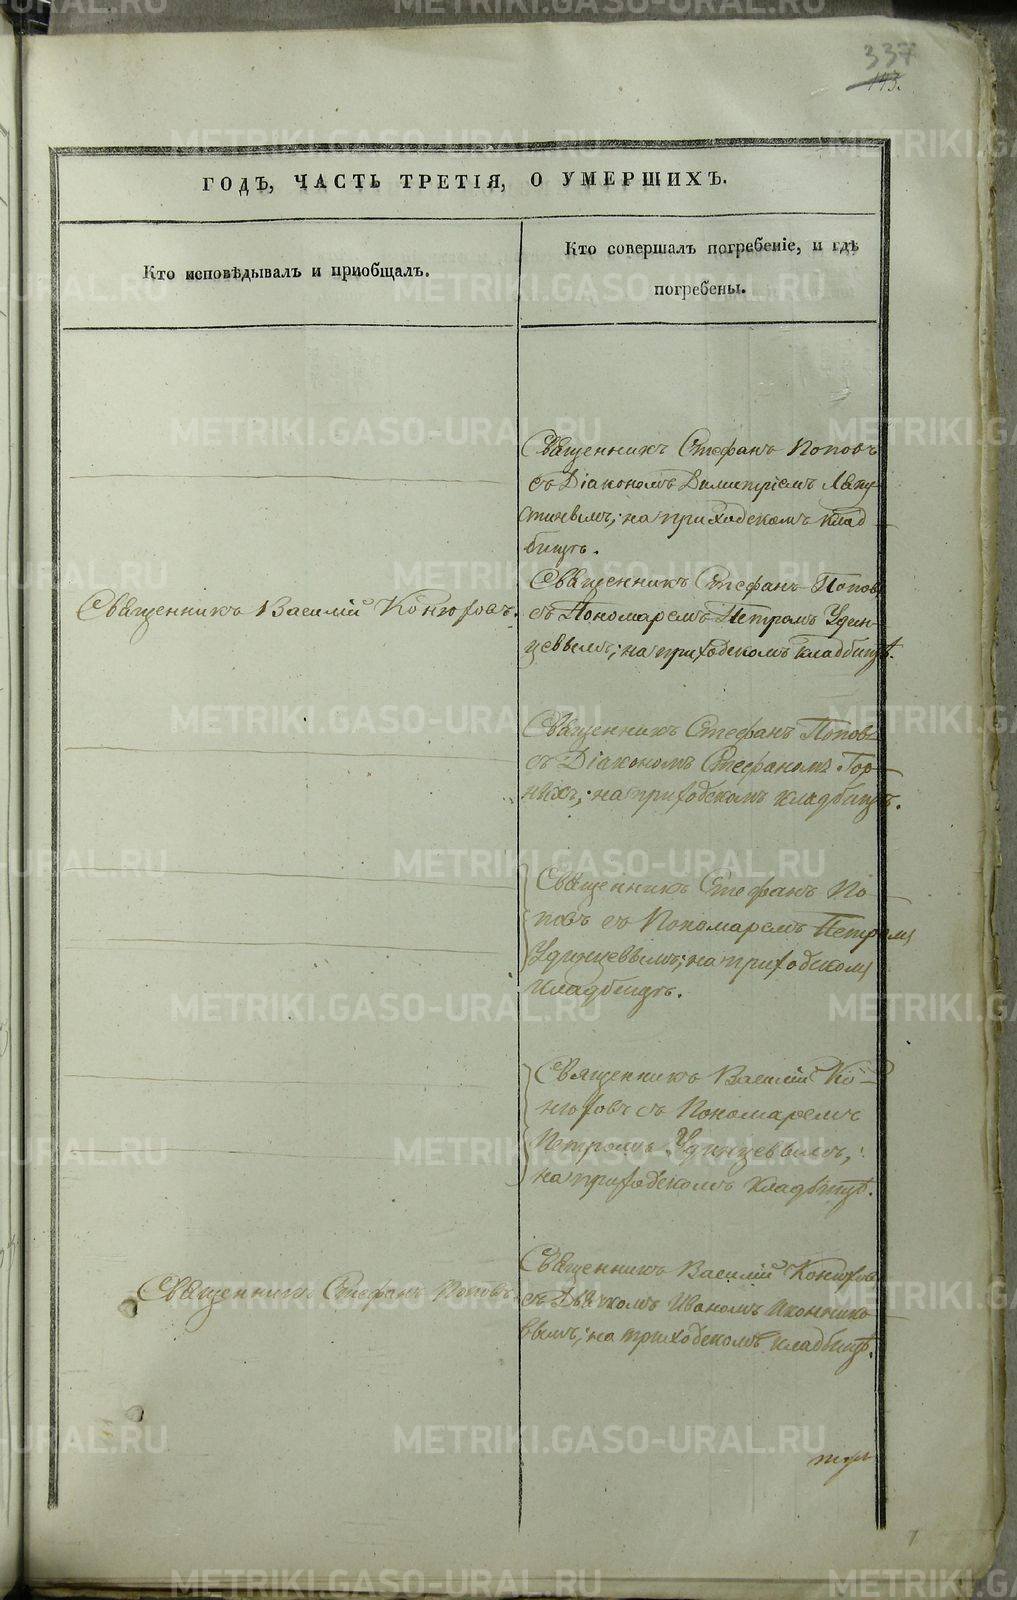 337
143.
ГОДЪ, ЧАСТЬ ТРЕТІЯ, О УМЕРШИХЪ.
Кто исповѣдывалъ и приобщалъ.
Кто совершалъ погребеніе, и гдѣ
погребены.
Священникъ Стефанъ Поповъ
съ Діакономъ Димитріемъ
на приходскомъ клад
бищѣ.
Священникъ Василій Конюховъ.
Священникъ Стефанъ Поповъ
съ Пономаремъ Петромъ Удин-
цевымъ; на приходскомъ кладбищѣ.
Священникъ Стефанъ Поповъ
съ Діакономъ Стефаномъ Гор-
ныхъ; на приходскомъ кладбищѣ.
Священникъ Стефанъ По
повъ съ Пономаремъ Петромъ
Удинцевымъ; на приходскомъ
кладбищѣ.
Священникъ Василій Ко-
нюховъ съ Пономаремъ
Петромъ Удинцевымъ;
на приходскомъ кладбищѣ.
Священникъ Стефанъ Поповъ.
Священникъ Василій Конюховъ
съ Дьячкомъ Иваномъ Иконнико
вымъ; на приходскомъ кладбищѣ.
METRIKI.GASO-URAL.RU